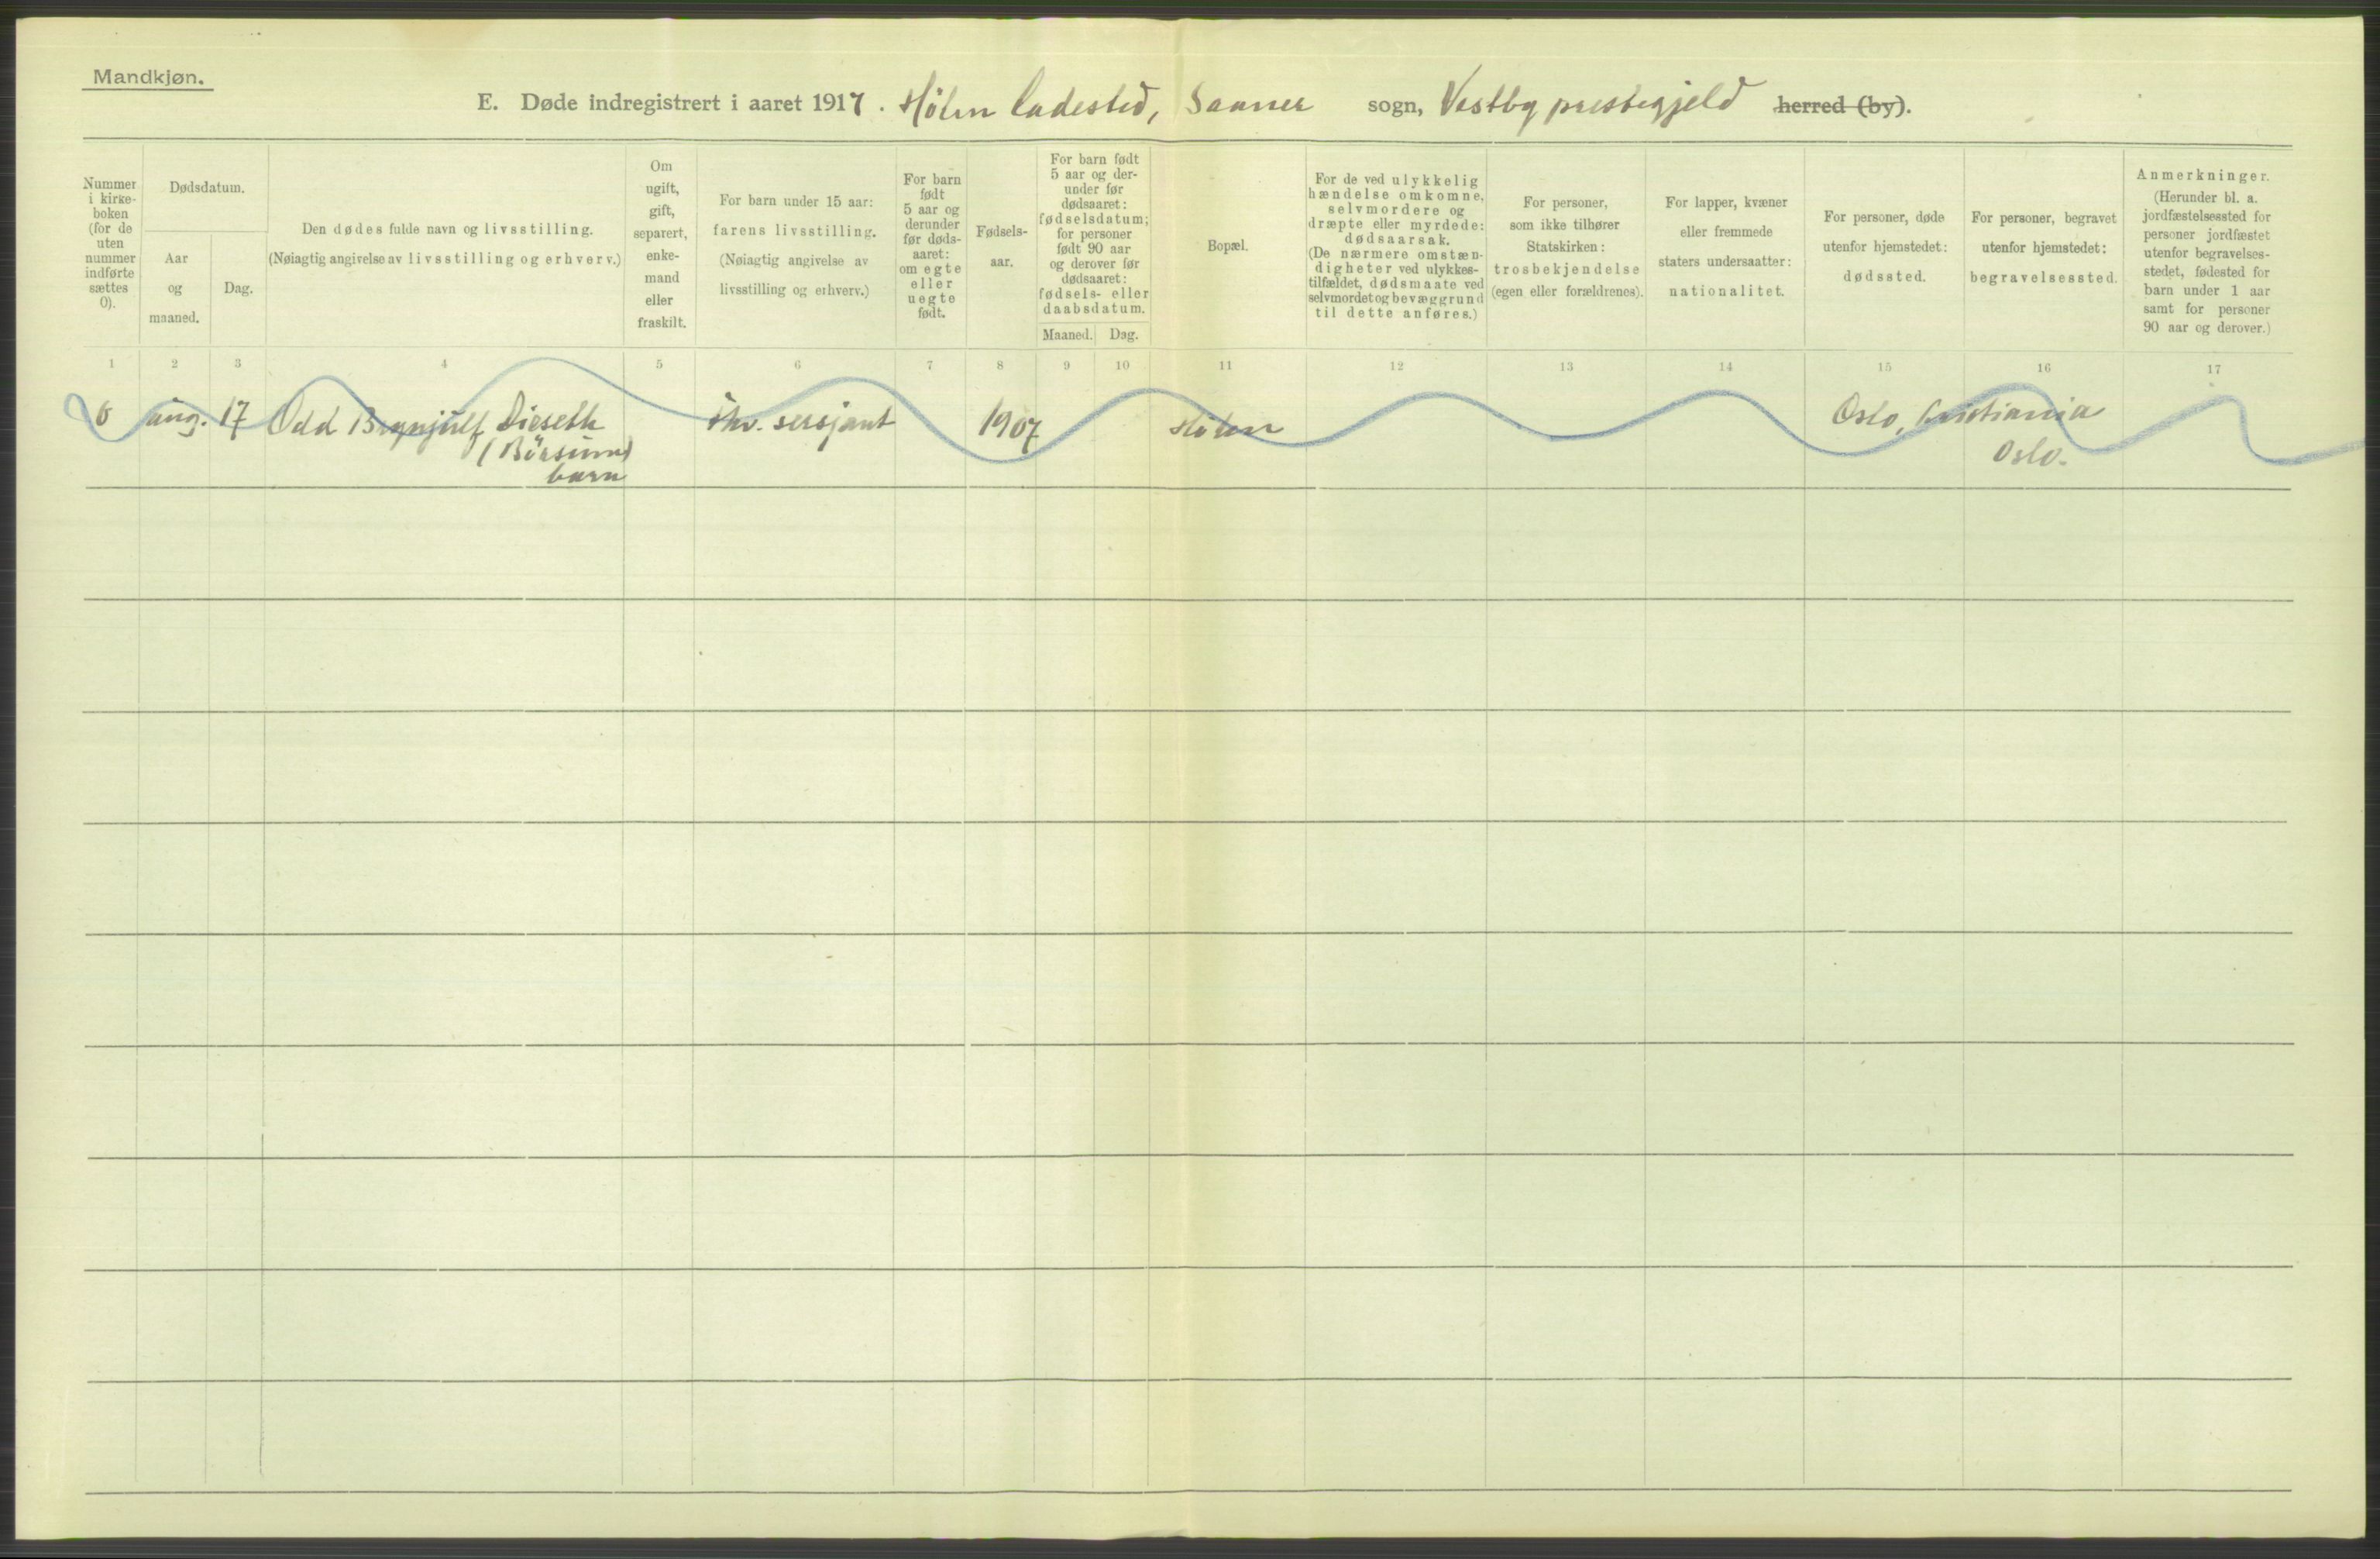 Mandkjøn.
E. Døde indregistrert i aaret 1917. Hölen ladested, Saaner sogn, Vestby prestegjeld herred (by).
Nummer i kirke-boken (for de uten nummer indførte sættes 0).
Dødsdatum.
Aar og maaned.
Dag.
Den dødes fulde navn og livsstilling.
(Nøiagtig angivelse av livsstilling og erhverv.)
Om ugift, gift, separert, enke-mand eller fraskilt.
For barn under 15 aar:
farens livsstilling.
(Nøiagtig angivelse av livsstilling og erhverv.)
For barn født 5 aar og derunder før døds-aaret: om egte eller uegte født.
Fødsels-aar.
For barn født 5 aar og der-under før dødsaaret: fødselsdatum; for personer født 90 aar og derover før dødsaaret: fødsels- eller daabsdatum.
Maaned. Dag.
Bopæl.
For de ved ulykkelig hændelse omkomne, selvmordere og dræpte eller myrdede: dødsaarsak.
(De nærmere omstæn-digheter ved ulykkes-tilfældet, dødsmaate ved selvmordet og bevæggrund til dette anføres.)
For personer, som ikke tilhører Statskirken: trosbekjendelse (egen eller forældrenes).
For lapper, kvæner eller fremmede staters undersaatter: nationalitet.
For personer, døde utenfor hjemstedet: dødssted.
For personer, begravet utenfor hjemstedet: begravelsessted.
Anmerkninger.
(Herunder bl. a. jordfæstelsessted for personer jordfæstet utenfor begravelses-stedet, fødested for barn under 1 aar samt for personer 90 aar og derover.)
1 2 3 4 5 6 7 8 9 10 11 12 13 14 15 16 17
6 aug. 17 Odd Brynjulf Dieseth fhv. sersjant 1907 Hölen Oslo, Kristiania
(Börsum) Oslo.
barn